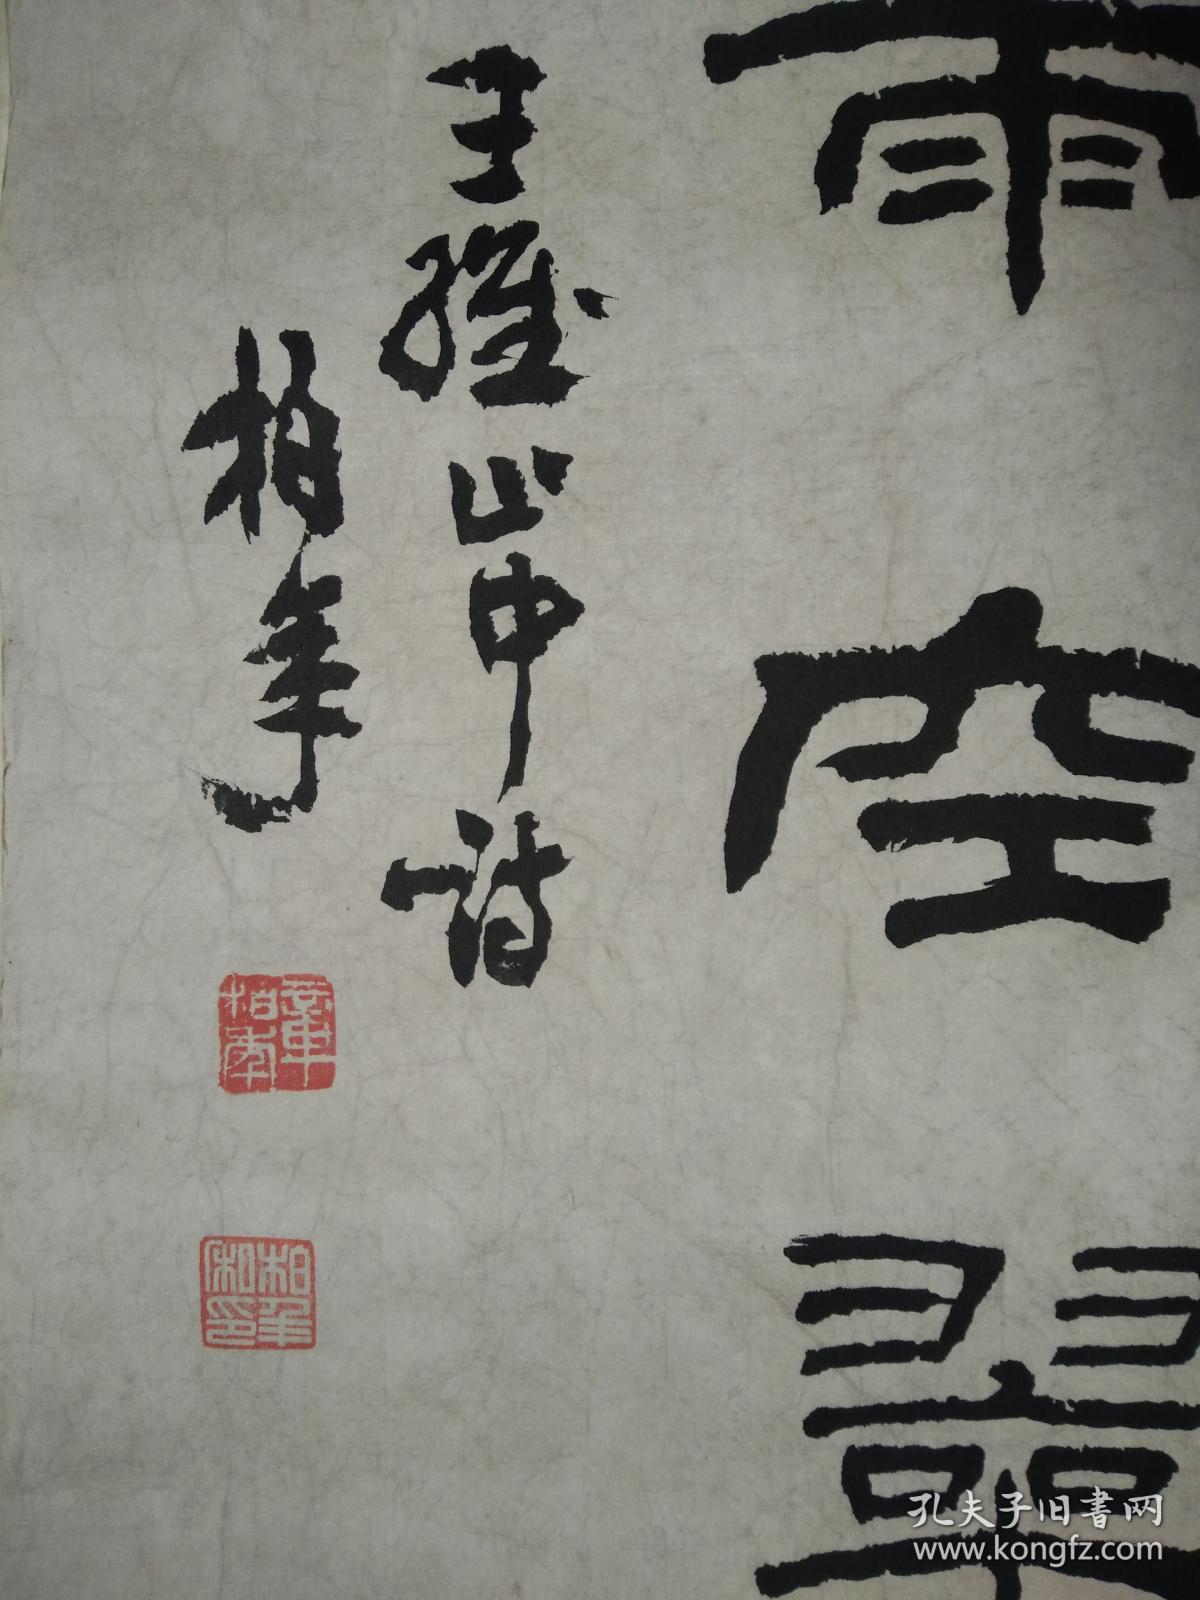 雨空翠
王維山中詩
柏年
章柏年
柏年私印
孔夫子旧书网
www.kongfz.com